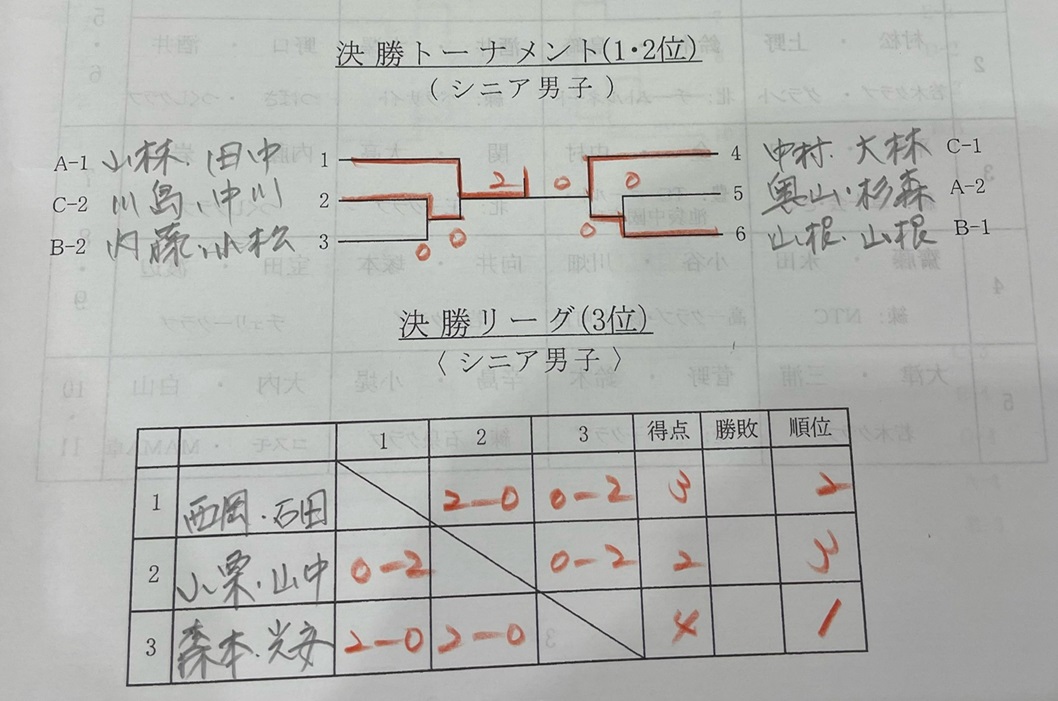 決勝トーナメント(1・2位)
(シニア男子)
A-1 小林、田中 1
C-2 川島、中川 2
B-2 内藤、小松 3
4 中村、大林 C-1
5 奥山・杉森 A-2
6 山根、山根 B-1
2 0 0
0 0 0
決勝リーグ(3位)
〈シニア男子〉
1 2 3 得点 勝敗 順位
1 西岡・石田 2-0 0-2 3 2
2 小栗、山中 0-2 0-2 2 3
3 森本・光安 2-0 2-0 4 1